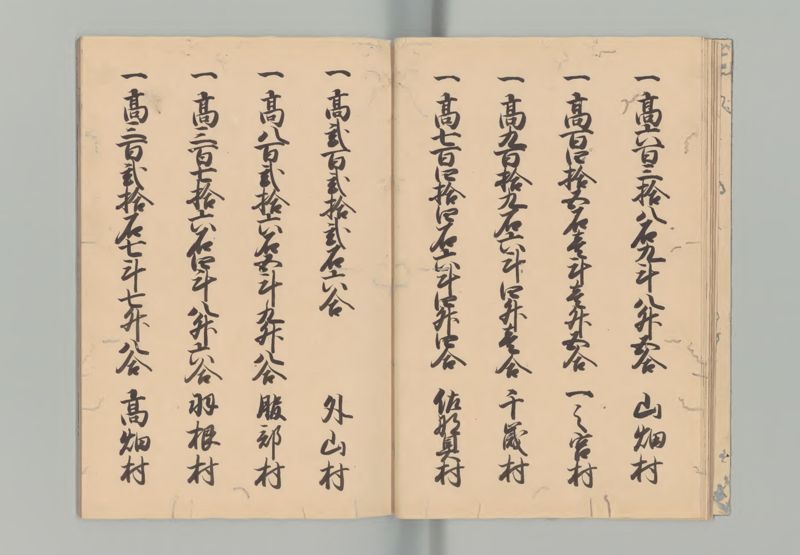 一高六百三拾八石九斗八升五合 山畑村
一高百四拾五石壱斗壱升五合 一之宮村
一高九百拾九石六斗四升壱合 千歳村
一高七百四拾四石六斗四升四合 佐那具村
一高弐百弐拾弐石六合 外山村
一高八百弐拾六石五斗九升八合 服部村
一高三百七拾六石四斗八升六合 羽根村
一高三百弐拾石七斗七升八合 高畑村